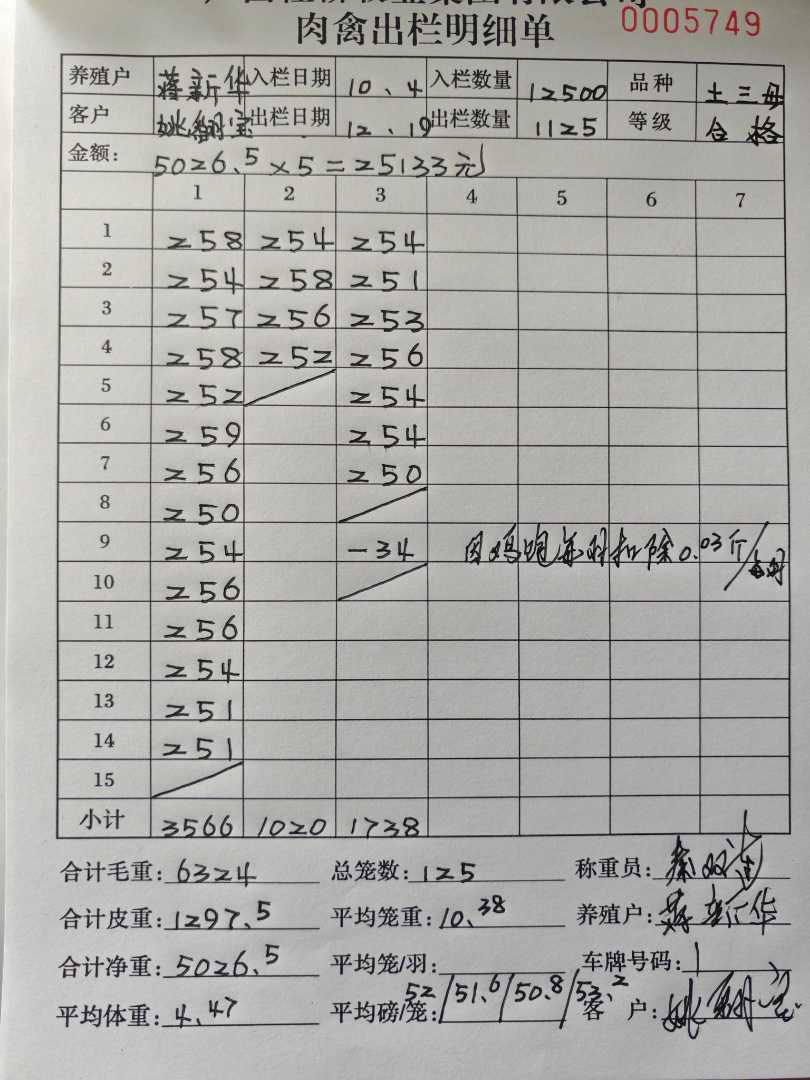 肉禽出栏明细单 0005749
养殖户 蒋新华 入栏日期 10、4 入栏数量 12500 品种 土三母
客户 姚翻宝 出栏日期 12、19 出栏数量 1125 等级 合格
金额: 5026.5×5=25133元
1 2 3 4 5 6 7
1 258 254 254
2 254 258 251
3 257 256 253
4 258 252 256
5 252 254
6 259 254
7 256 250
8 250
9 254 -34 扣除0.03斤/
10 256
11 256
12 254
13 251
14 251
15
小计 3566 1020 1738
合计毛重: 6324 总笼数: 125 称重员:
合计皮重: 1297.5 平均笼重: 10.38 养殖户: 蒋新华
合计净重: 5026.5 平均笼/羽: 车牌号码: 1
平均体重: 4.47 平均磅/笼: 52/51.6/50.8/53.2 客户: 姚翻宝